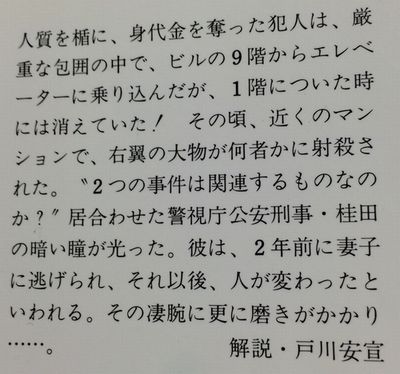 人質を楯に、身代金を奪った犯人は、厳
重な包囲の中で、ビルの9階からエレベ
ーターに乗り込んだが、1階についた時
には消えていた! その頃、近くのマン
ションで、右翼の大物が何者かに射殺さ
れた。〝2つの事件は関連するものなの
か?〟居合わせた警視庁公安刑事・桂田
の暗い瞳が光った。彼は、2年前に妻子
に逃げられ、それ以後、人が変わったと
いわれる。その凄腕に更に磨きがかかり
……。
解説・戸川安宣